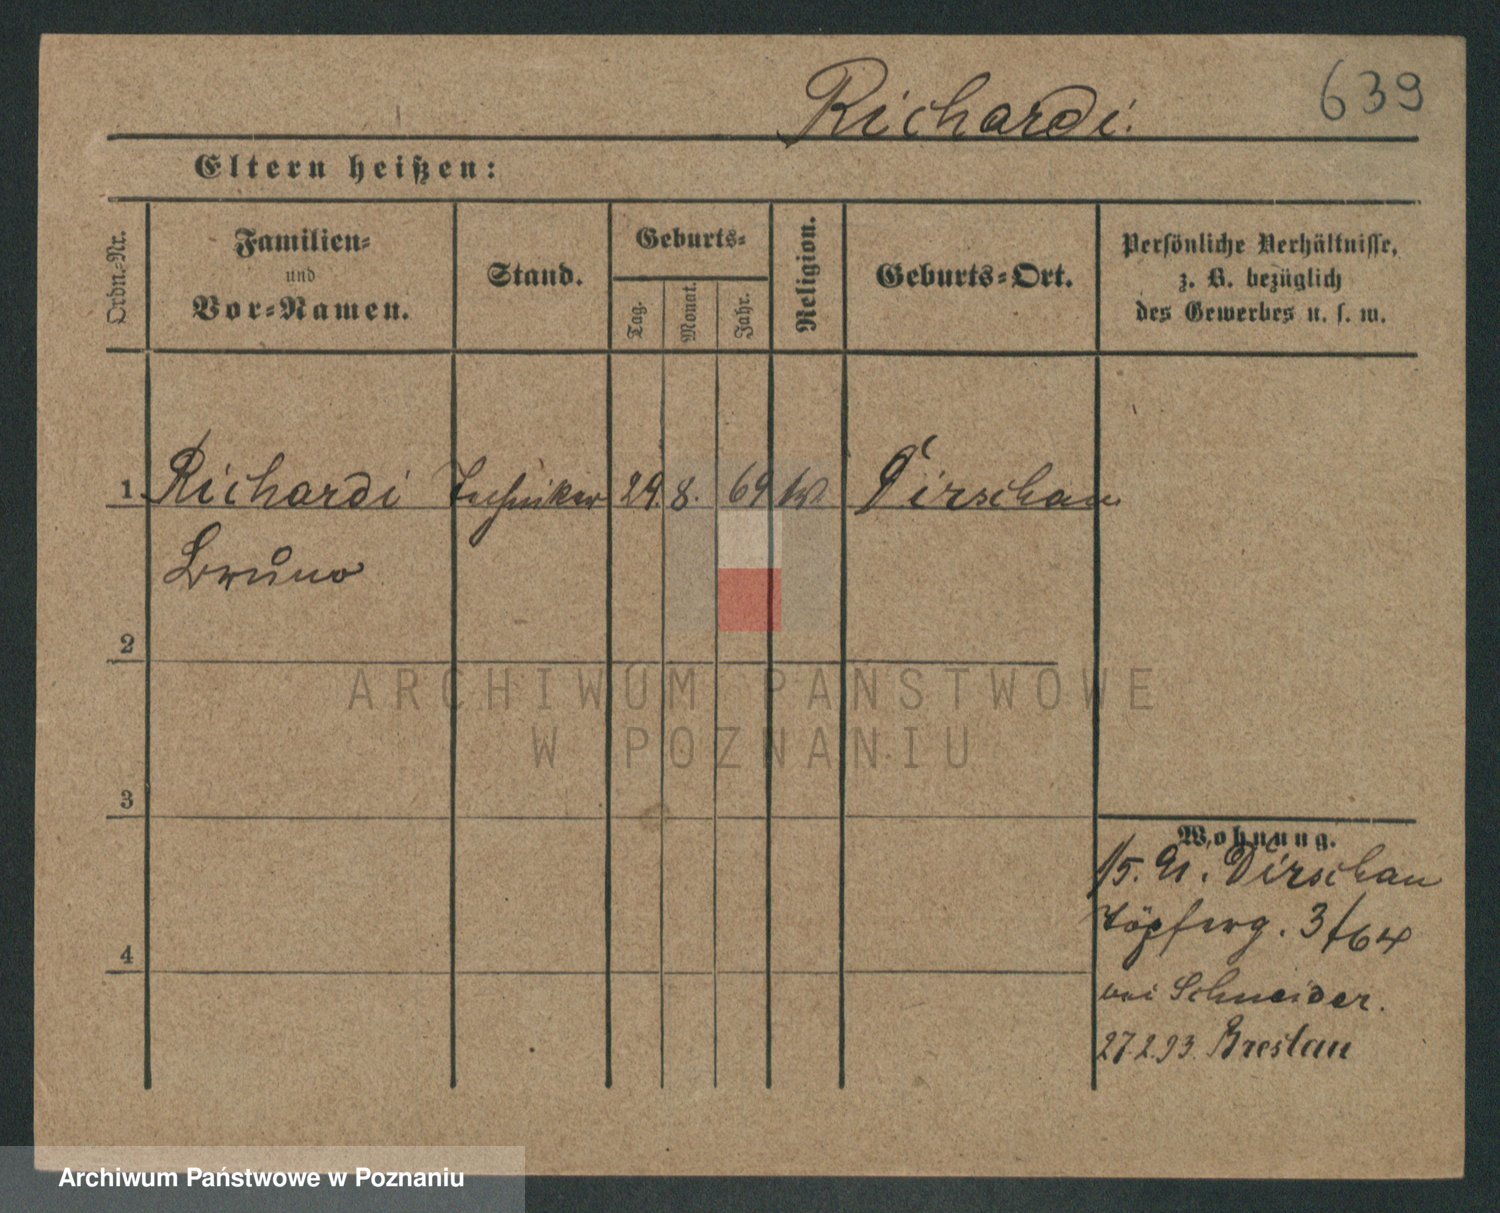 Richardi.
639
Eltern heißen:
Ordn.-Nr.
Familien-
und
Vor-Namen.
Stand.
Geburts-
Tag.
Monat.
Jahr.
Religion.
Geburts-Ort.
Persönliche Verhältnisse,
z. B. bezüglich
des Gewerbes u. s. w.
1 Richardi Techniker 29. 8. 69 Dirschau
Bruno
2
ARCHIWUM PAŃSTWOWE
W POZNANIU
3
4
Wohnung.
Dirschau
Töpferg. 3/64
bei Schneider.
27.2.93. Breslau
Archiwum Państwowe w Poznaniu